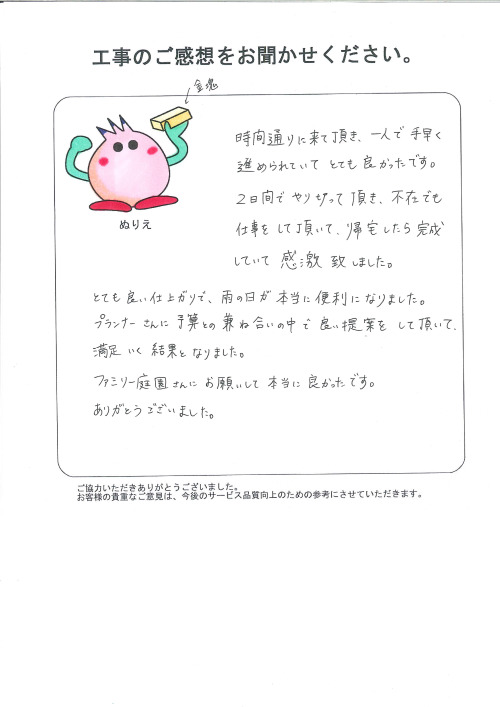 工事のご感想をお聞かせください。
金塊
ぬりえ
時間通りに来て頂き、一人で手早く
進められていてとても良かったです。
2日間でやり切って頂き、不在でも
仕事をして頂いて、帰宅したら完成
していて感激致しました。
とても良い仕上がりで、雨の日が本当に便利になりました。
プランナーさんに予算との兼ね合いの中で良い提案をして頂いて、
満足いく結果となりました。
ファミリー庭園さんにお願いして本当に良かったです。
ありがとうございました。
ご協力いただきありがとうございました。
お客様の貴重なご意見は、今後のサービス品質向上のための参考にさせていただきます。